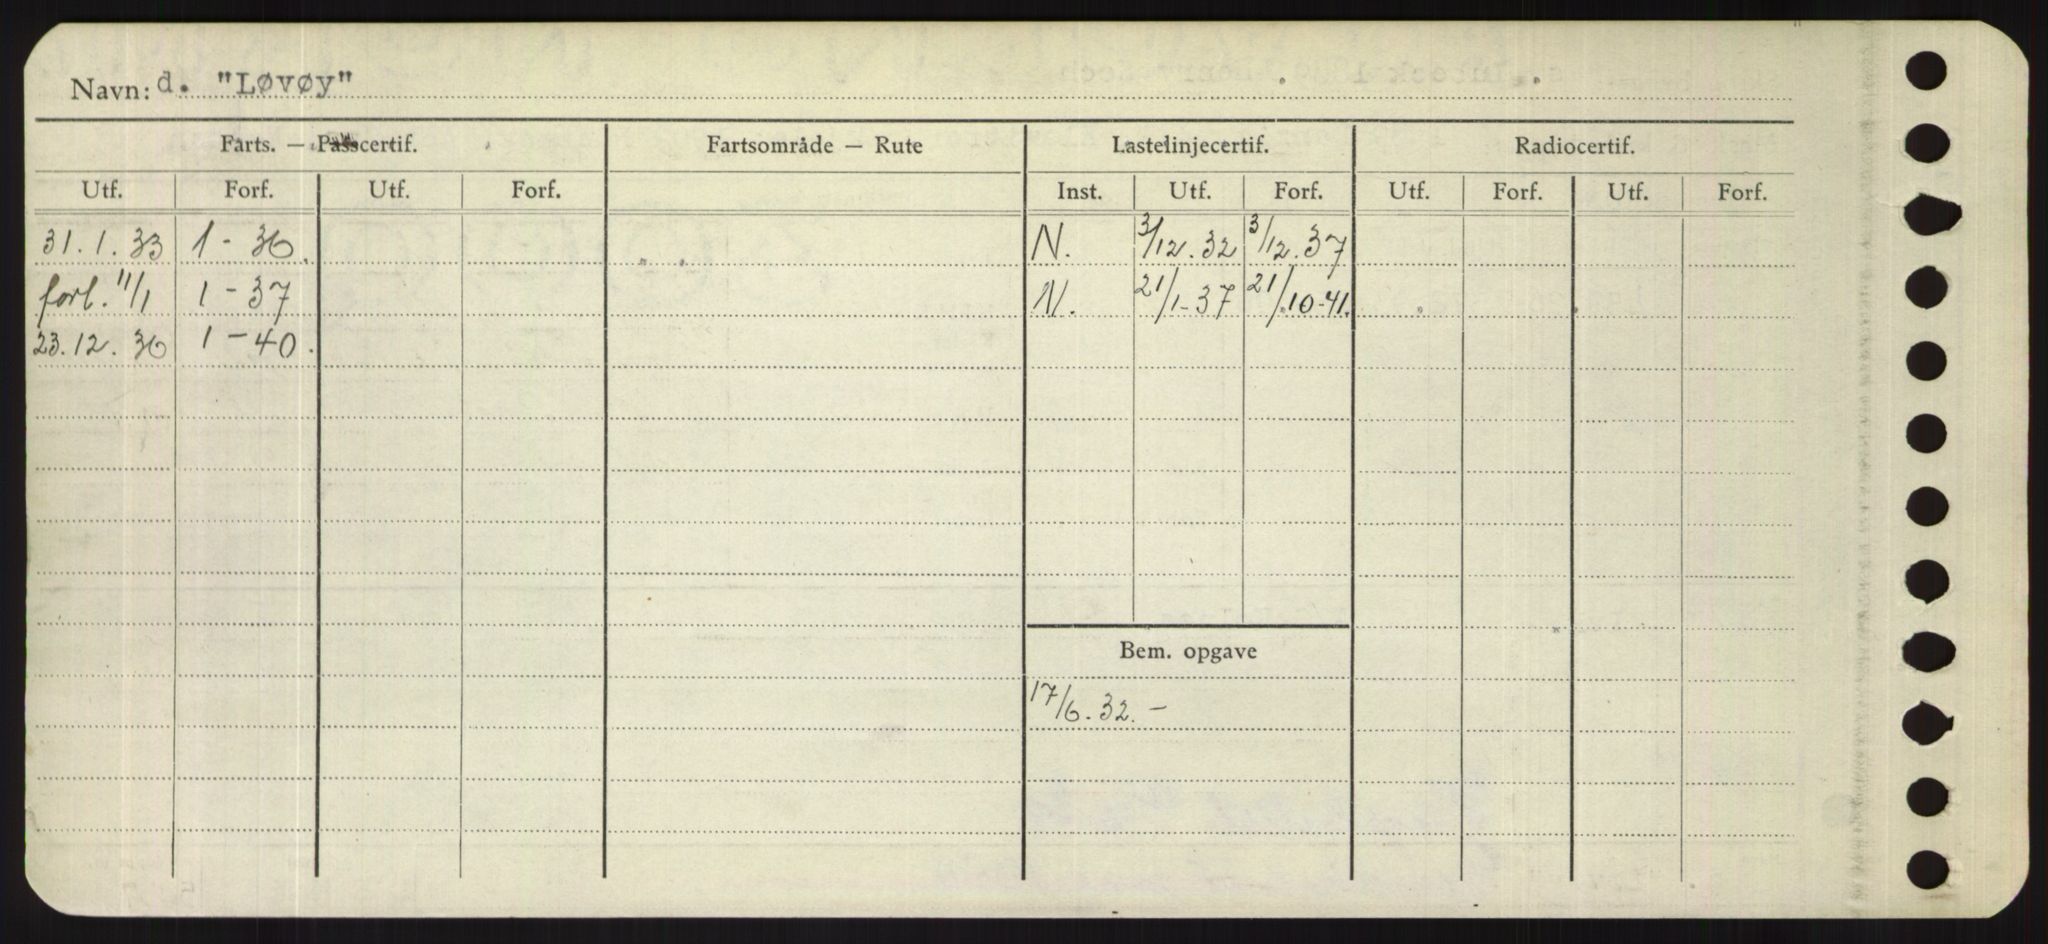 Navn: d. "Løvøy"
Farts. — Passcertif. Fartsområde — Rute Lastelinjecertif. Radiocertif.
Utf. Forf. Utf. Forf. Inst. Utf. Forf. Utf. Forf. Utf. Forf.
31.1.33 1-36. N. 3/12.32 3/12.37
forl. 11/1 1-37 N. 21/1-37 21/10-41.
23.12.36 1-40.
Bem. opgave
17/6.32.-